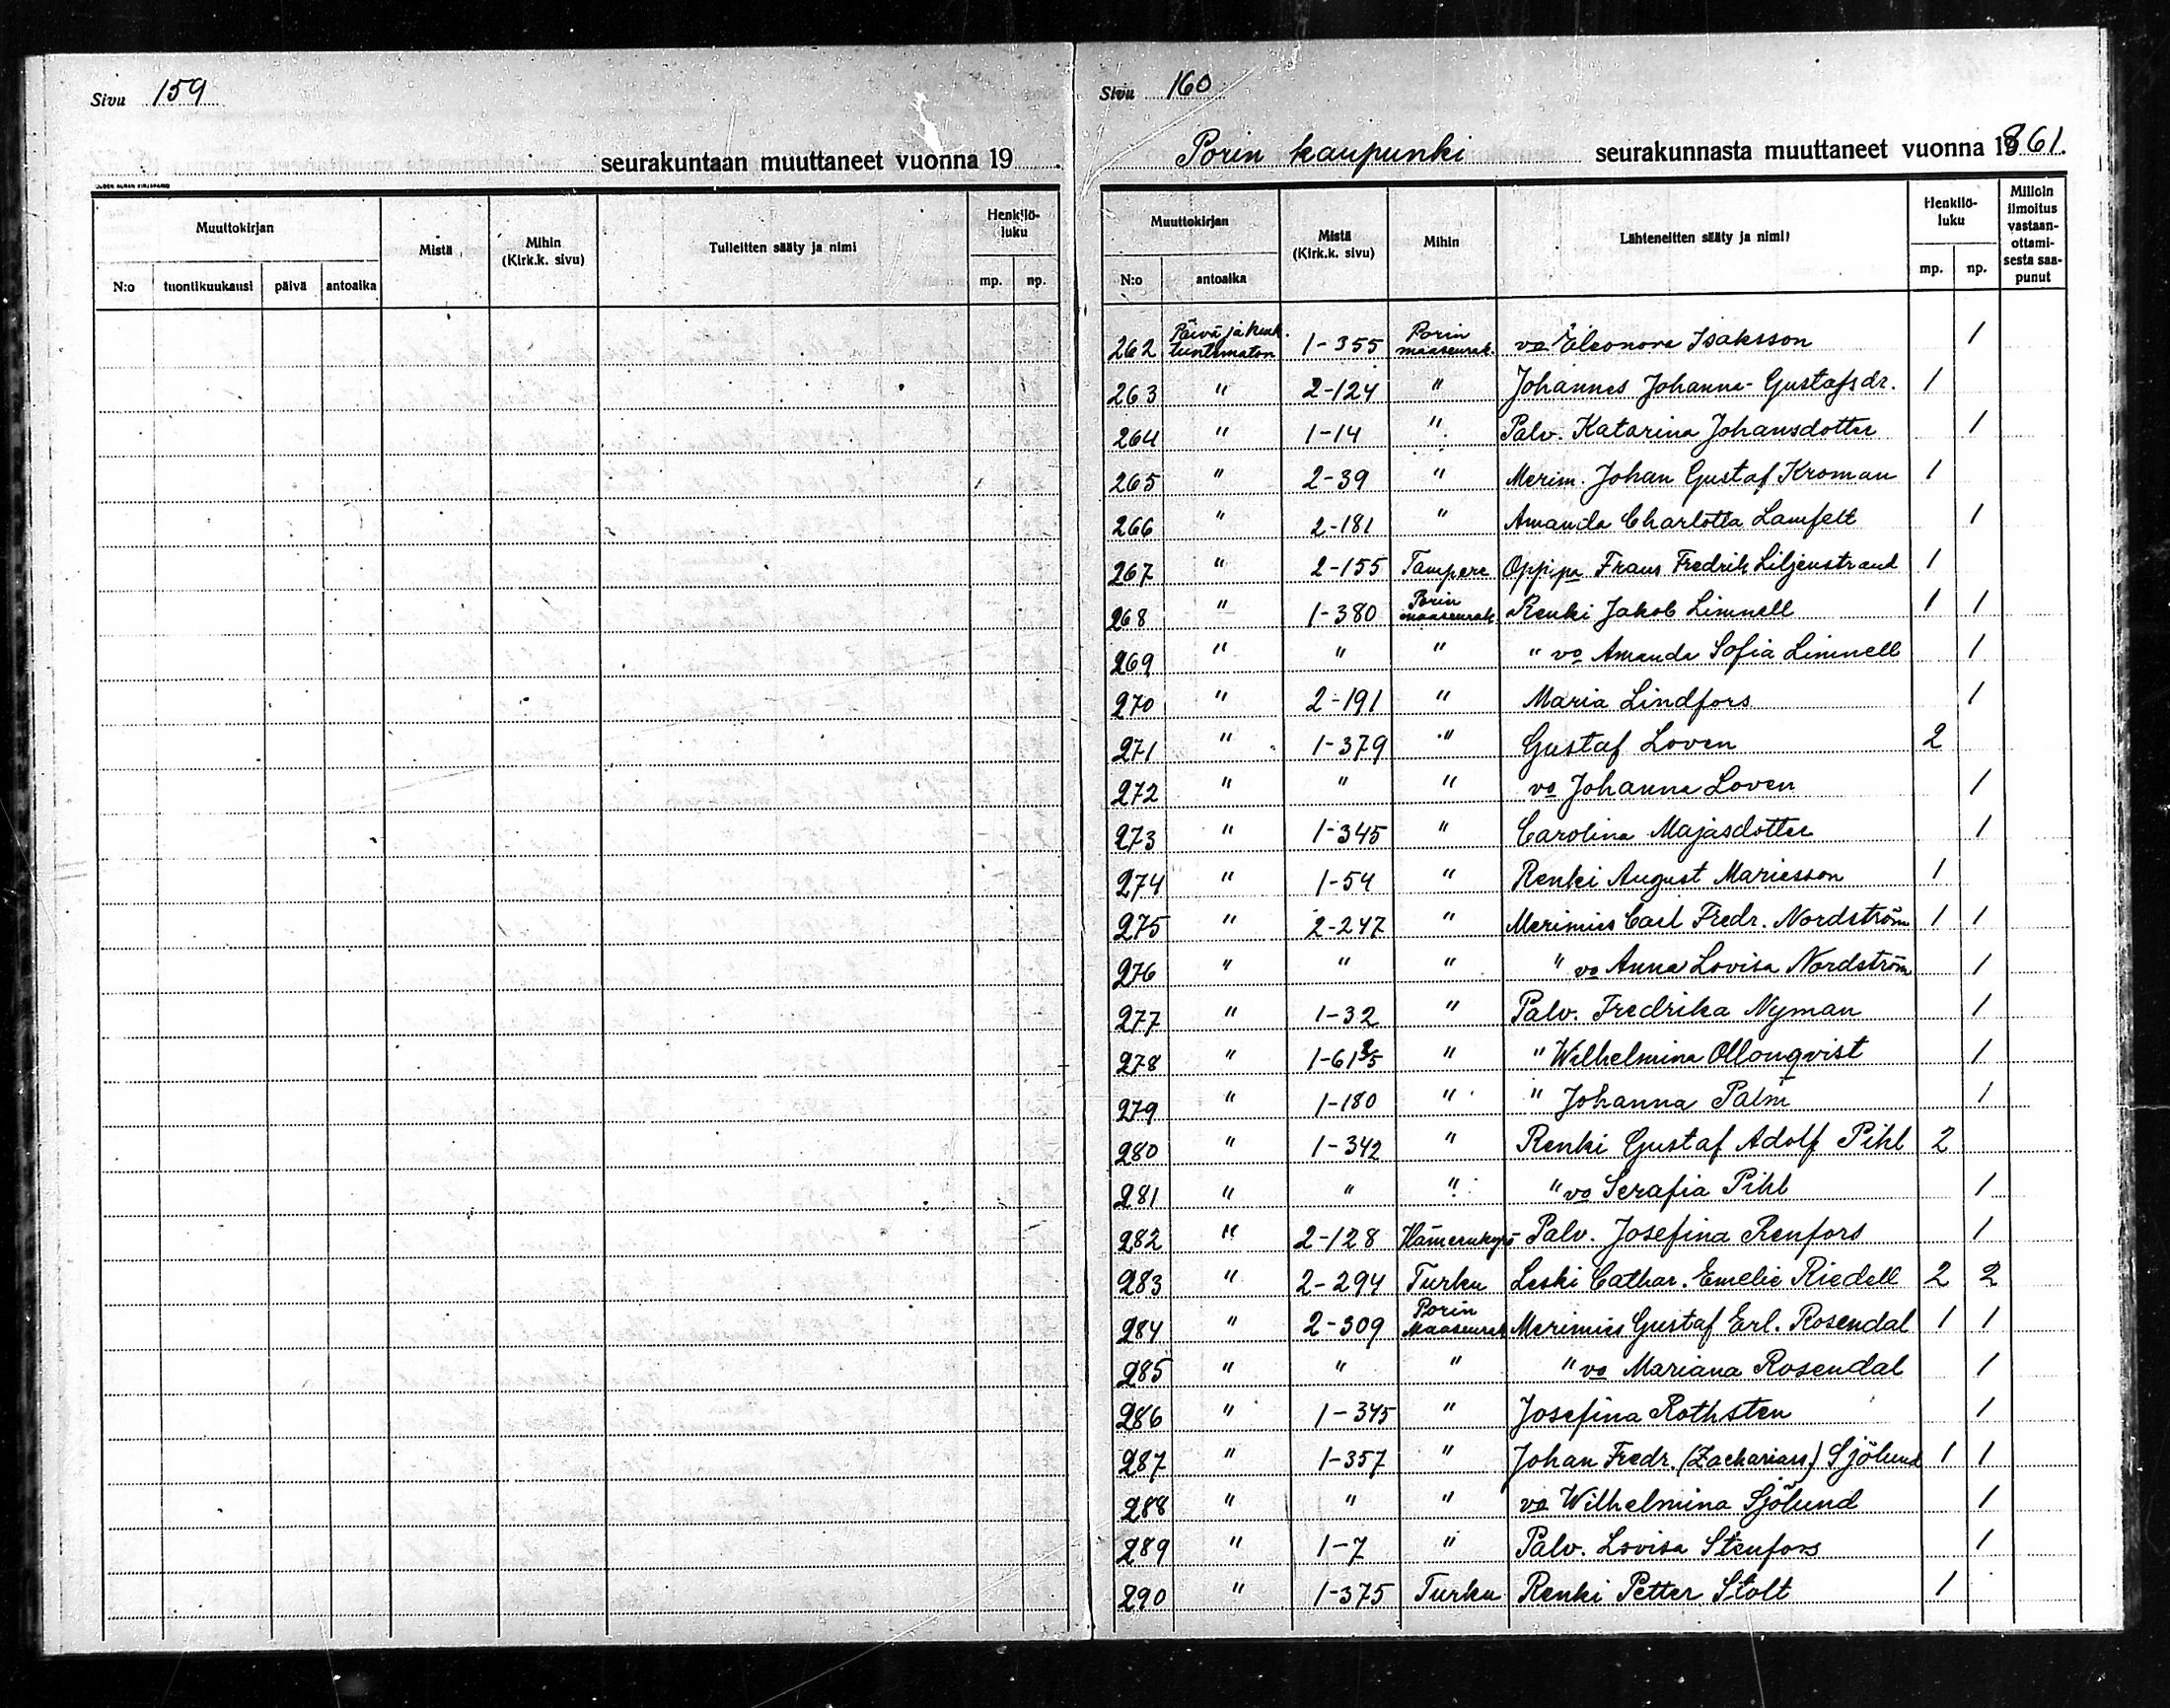 Sivu 159
seurakuntaan muuttaneet vuonna 19
Muuttokirjan
Mistä
Mihin (Kirk.k. sivu)
Tulleitten sääty ja nimi
Henkilö-luku
N:o tuontikuukausi päivä antoaika mp. np.
Sivu 160
Porin kaupunki seurakunnasta muuttaneet vuonna 1861.
Muuttokirjan
Mistä (Kirk.k. sivu)
Mihin
Lähteneitten sääty ja nimi
Henkilö-luku
Milloin ilmoitus vastaan-ottami-sesta saa-punut
N:o antoaika mp. np.
262 Päivä ja kuuk. tuntematon 1-355 Porin maaseurak. vo Eleonora Isaksson 1
263 " 2-124 " Johannes Johanna-Gustafsdr. 1
264 " 1-14 " Palv. Katarina Johansdotter 1
265 " 2-39 " Merim. Johan Gustaf Kroman 1
266 " 2-181 " Amanda Charlotta Lamfelt 1
267 " 2-155 Tampere Opp.pa Frans Fredrik Liljenstrand 1
268 " 1-380 Porin maaseurak. Renki Jakob Limnell 1 1
269 " " " " vo Amanda Sofia Limnell 1
270 " 2-191 " Maria Lindfors 1
271 " 1-379 " Gustaf Loven 2
272 " " " vo Johanna Loven 1
273 " 1-345 " Carolina Majasdotter 1
274 " 1-54 " Renki August Mariesson 1
275 " 2-247 " Merimies Carl Fredr. Nordström 1 1
276 " " " " vo Anna Lovisa Nordström 1
277 " 1-32 " Palv. Fredrika Nyman 1
278 " " " Wilhelmina Ollonqvist 1
279 " 1-180 " " Johanna Palm 1
280 " 1-342 " Renki Gustaf Adolf Pihl 2
281 " " " " vo Serafia Pihl 1
282 " 2-128 Hämeenkyrö Palv. Josefina Renfors 1
283 " 2-294 Turku Leski Cathar. Emelie Riedell 2 2
284 " 2-309 Porin Maaseurak Merimies Gustaf Erl. Rosendal 1 1
285 " " " " vo Mariana Rosendal 1
286 " 1-345 " Josefina Rothsten 1
287 " 1-357 " Johan Fredr. (Zachariass) Sjölund 1 1
288 " " " vo Wilhelmina Sjölund 1
289 " 1-7 " Palv. Lovisa Stenfors 1
290 " 1-375 Turku Renki Petter Stolt 1